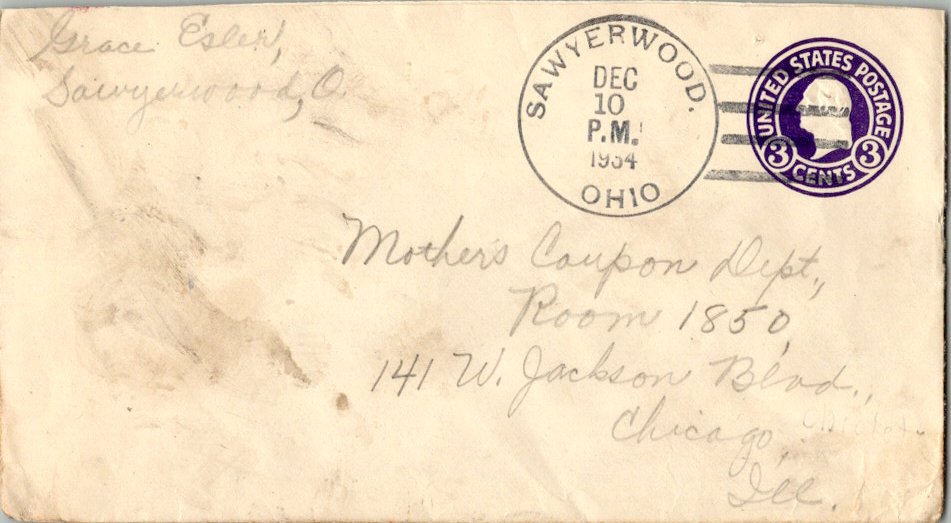 Grace Esler,
Sawyerwood, O.
SAWYERWOOD.
DEC
10
P.M.
1934
OHIO
UNITED STATES POSTAGE
3 CENTS 3
Mother's Coupon Dept.,
Room 1850,
141 W. Jackson Blvd.,
Chicago,
Ill.